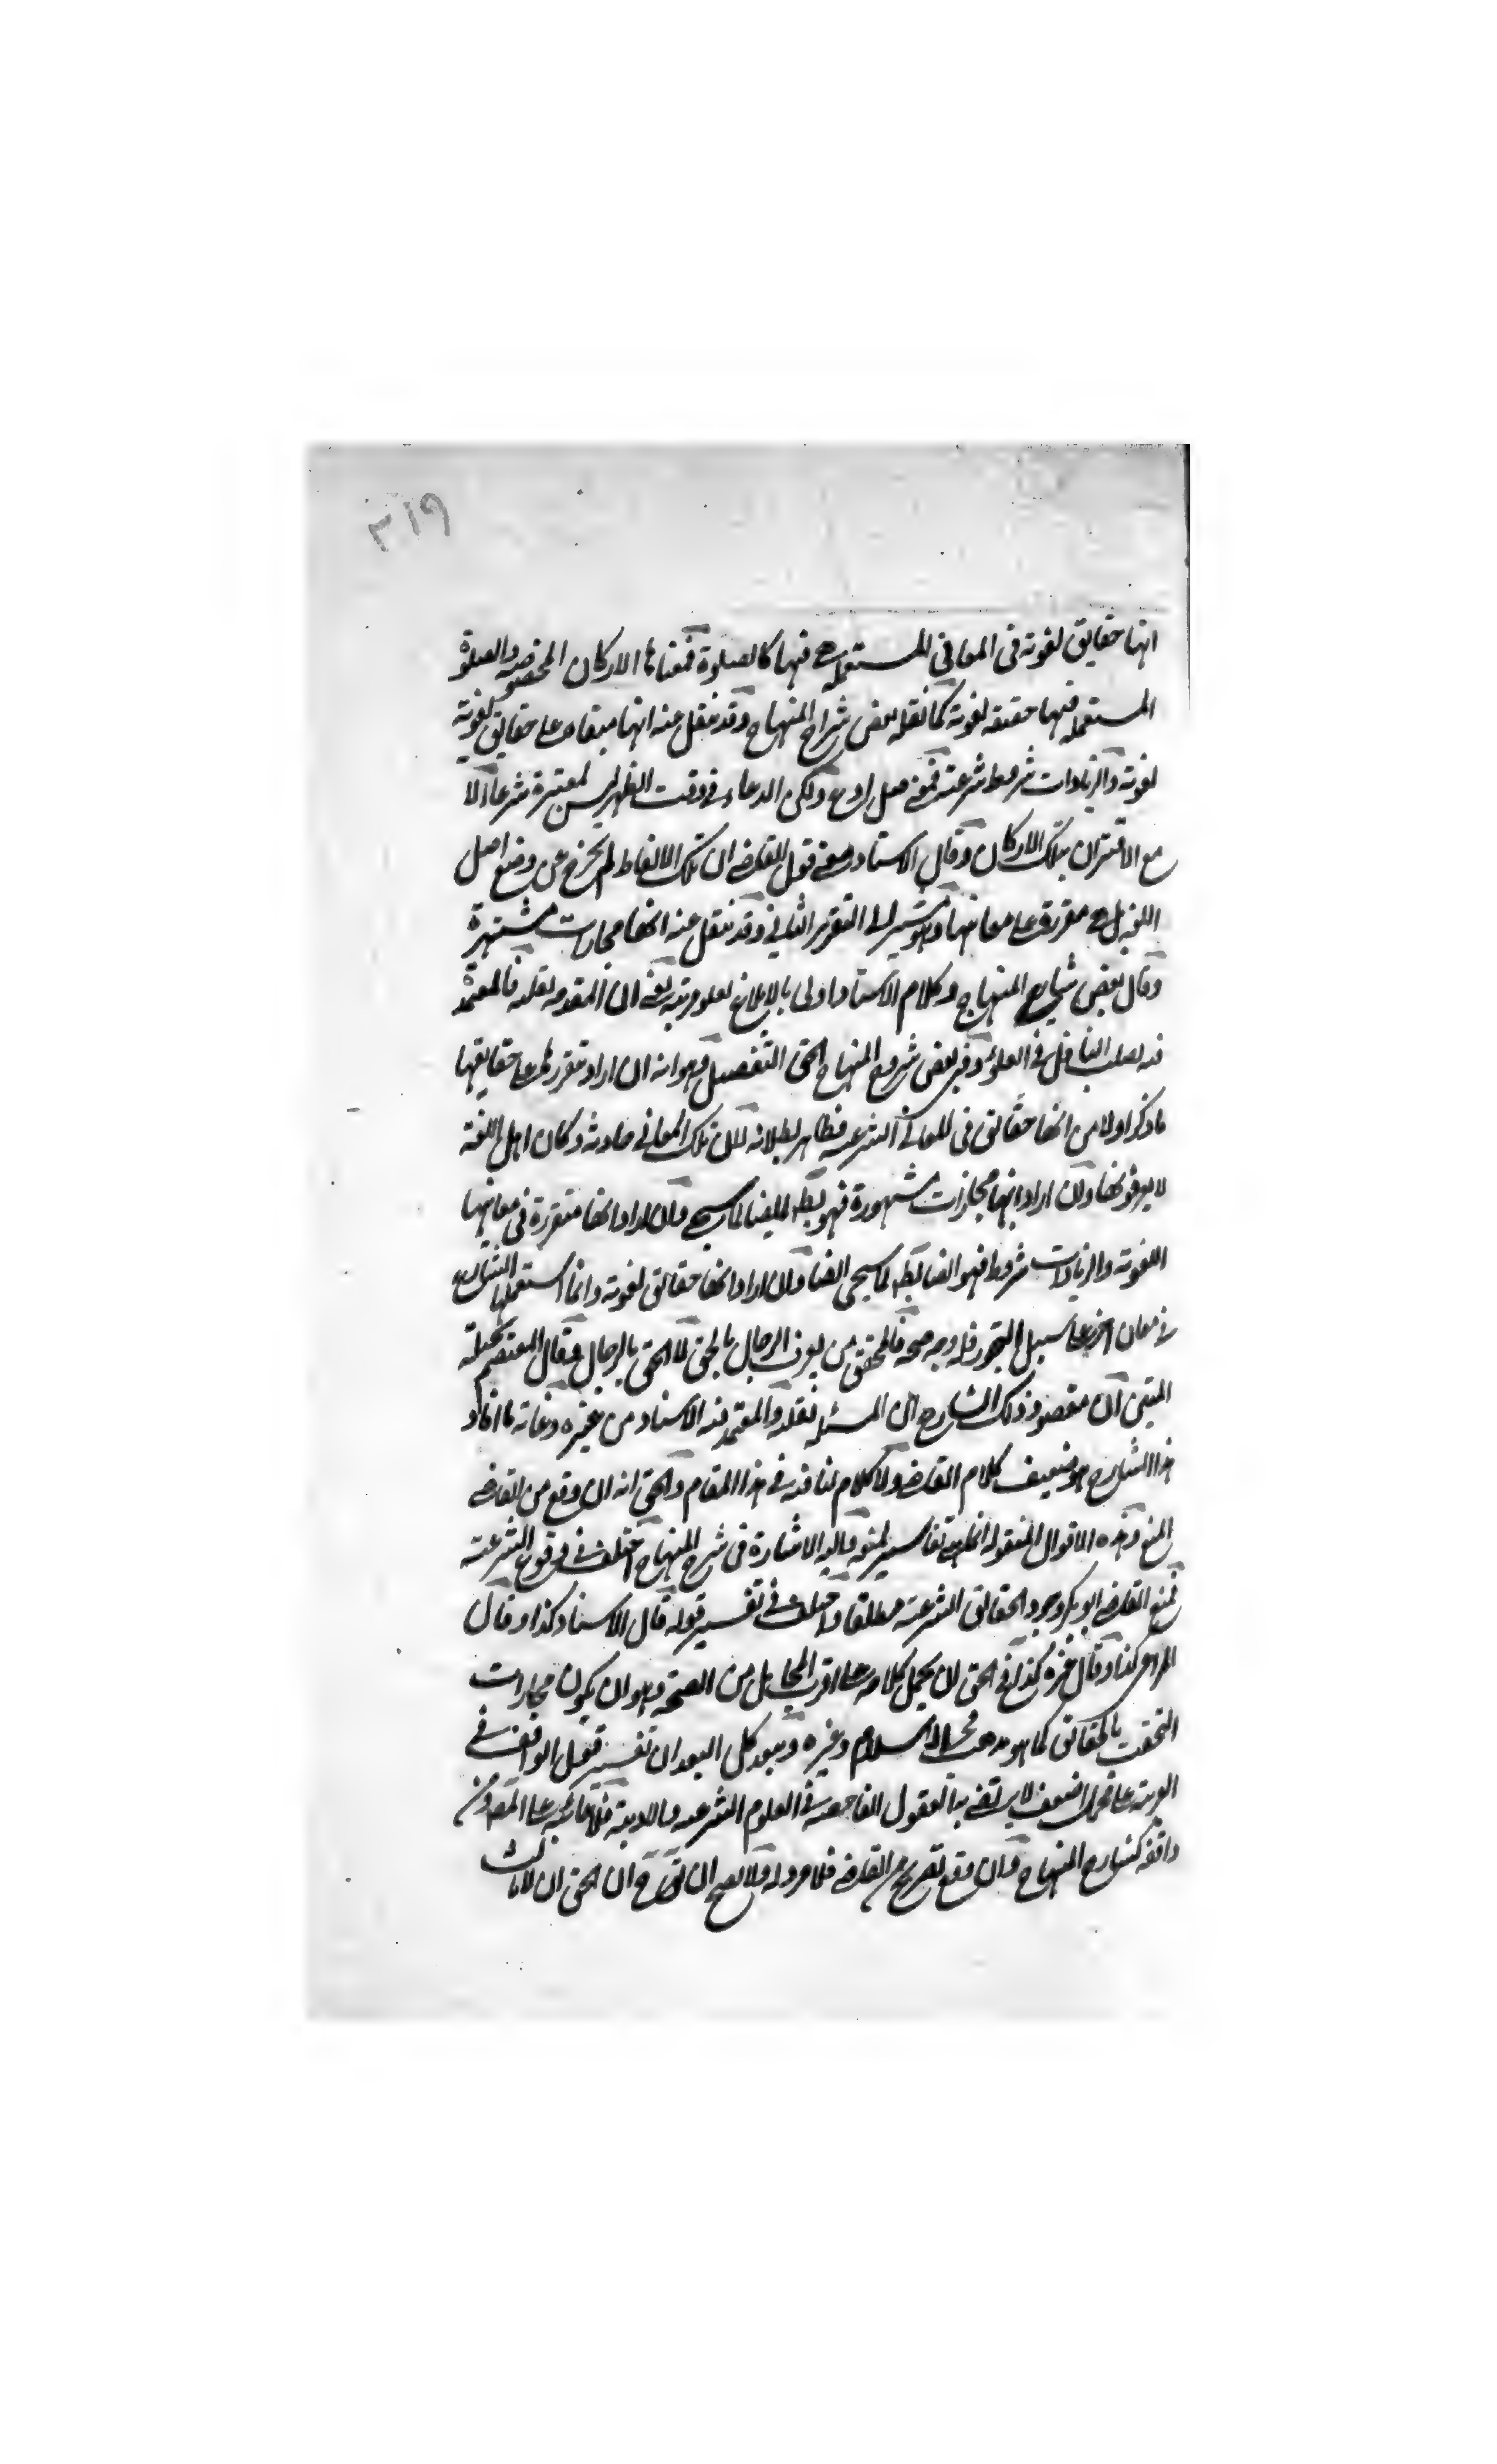 ٣١٩
انها حقايق لغوية في المعاني المستعملة هي فيها كالصلوة فمعناها الاركان المخصوصة والصلوة
المستعملة فيها حقيقة لغوية كما نقله بعض شراح المنهاج وقد ينقل عنه انها مبقاة على حقايق لغوية
لغوية والزيادات شروط شرعية فمعنى صل ادع ولكن الدعاء في وقت الظهر ليس لمعتبرة شرعا الا
مع الاقتران بتلك الاركان وقال الاستاد معنى قول القاضي ان تلك الالفاظ لم يخرج عن وضع اصل
اللغة بل هي مقررة على معانيها وهو يشير الى التقرير الثاني وقد ينقل عنه انها مجازات مشتهرة
وقال بعض شارح المنهاج وكلام الاستاد اولى بالابلاغ لعلو مرتبه يعني ان المقدمة نقلية فالمعتمد
فيه الناقل في العلو وفي بعض شروح المنهاج الحق التفصيل وهو انه ان اراد تقررها على حقايقها
ما ذكر اولا من انها حقائق في المعاني الشرعية فظاهر بطلانه لان تلك المعاني حادثة وكان اهل اللغة
لا يعرفونها وان اراد انها مجازات مشهورة فهو ايضا لما سيجي وان اراد انها متقررة في معانيها
اللغوية والزيادات شروط فهو ايضا لما سيجي ايضا وان اراد انها حقائق لغوية وانما استعملها الشارع
في معان اخر على سبيل التجوز فله وجه صحة فالمحقق من يعرف الرجال بالحق لا الحق بالرجال وقال المعتصم بحبله
المتين ان مقصود ذلك الشارح ان المسئلة نقلية والمعتمد فيه الاستاد من غيره وغاية ما افاد
هذا الشارح هو ضعيف كلام القاضي ولا كلام لنا فيه في هذا المقام والحق انه ان وقع من القاضي
المنع وهذه الاقوال المنقولة تفاسير لمنعه واليه الاشارة في شرح المنهاج اختلف في وقوع الشرعية
فمنع القاضي ابو بكر وجود الحقائق الشرعية مطلقا واختلف في تفسير قوله قال الاستاد كذا وقال
كذا وقال غيره كذا في الحق ان يحمل كلامه على اقرب المحامل من الصحة وهو ان يكون مجازات
التحقت بالحقائق كما هو مذهب فخر الاسلام وغيره ويبعد كل البعد ان تفسير قول الواقف في
العربية على محمل ضعيف لا يرتضى به العقول في العلوم الشرعية والادبية على
واقفه كشارح المنهاج وان وقع تصريح من القاضي فلا مرد له ولا يصح ان ان الحق ان